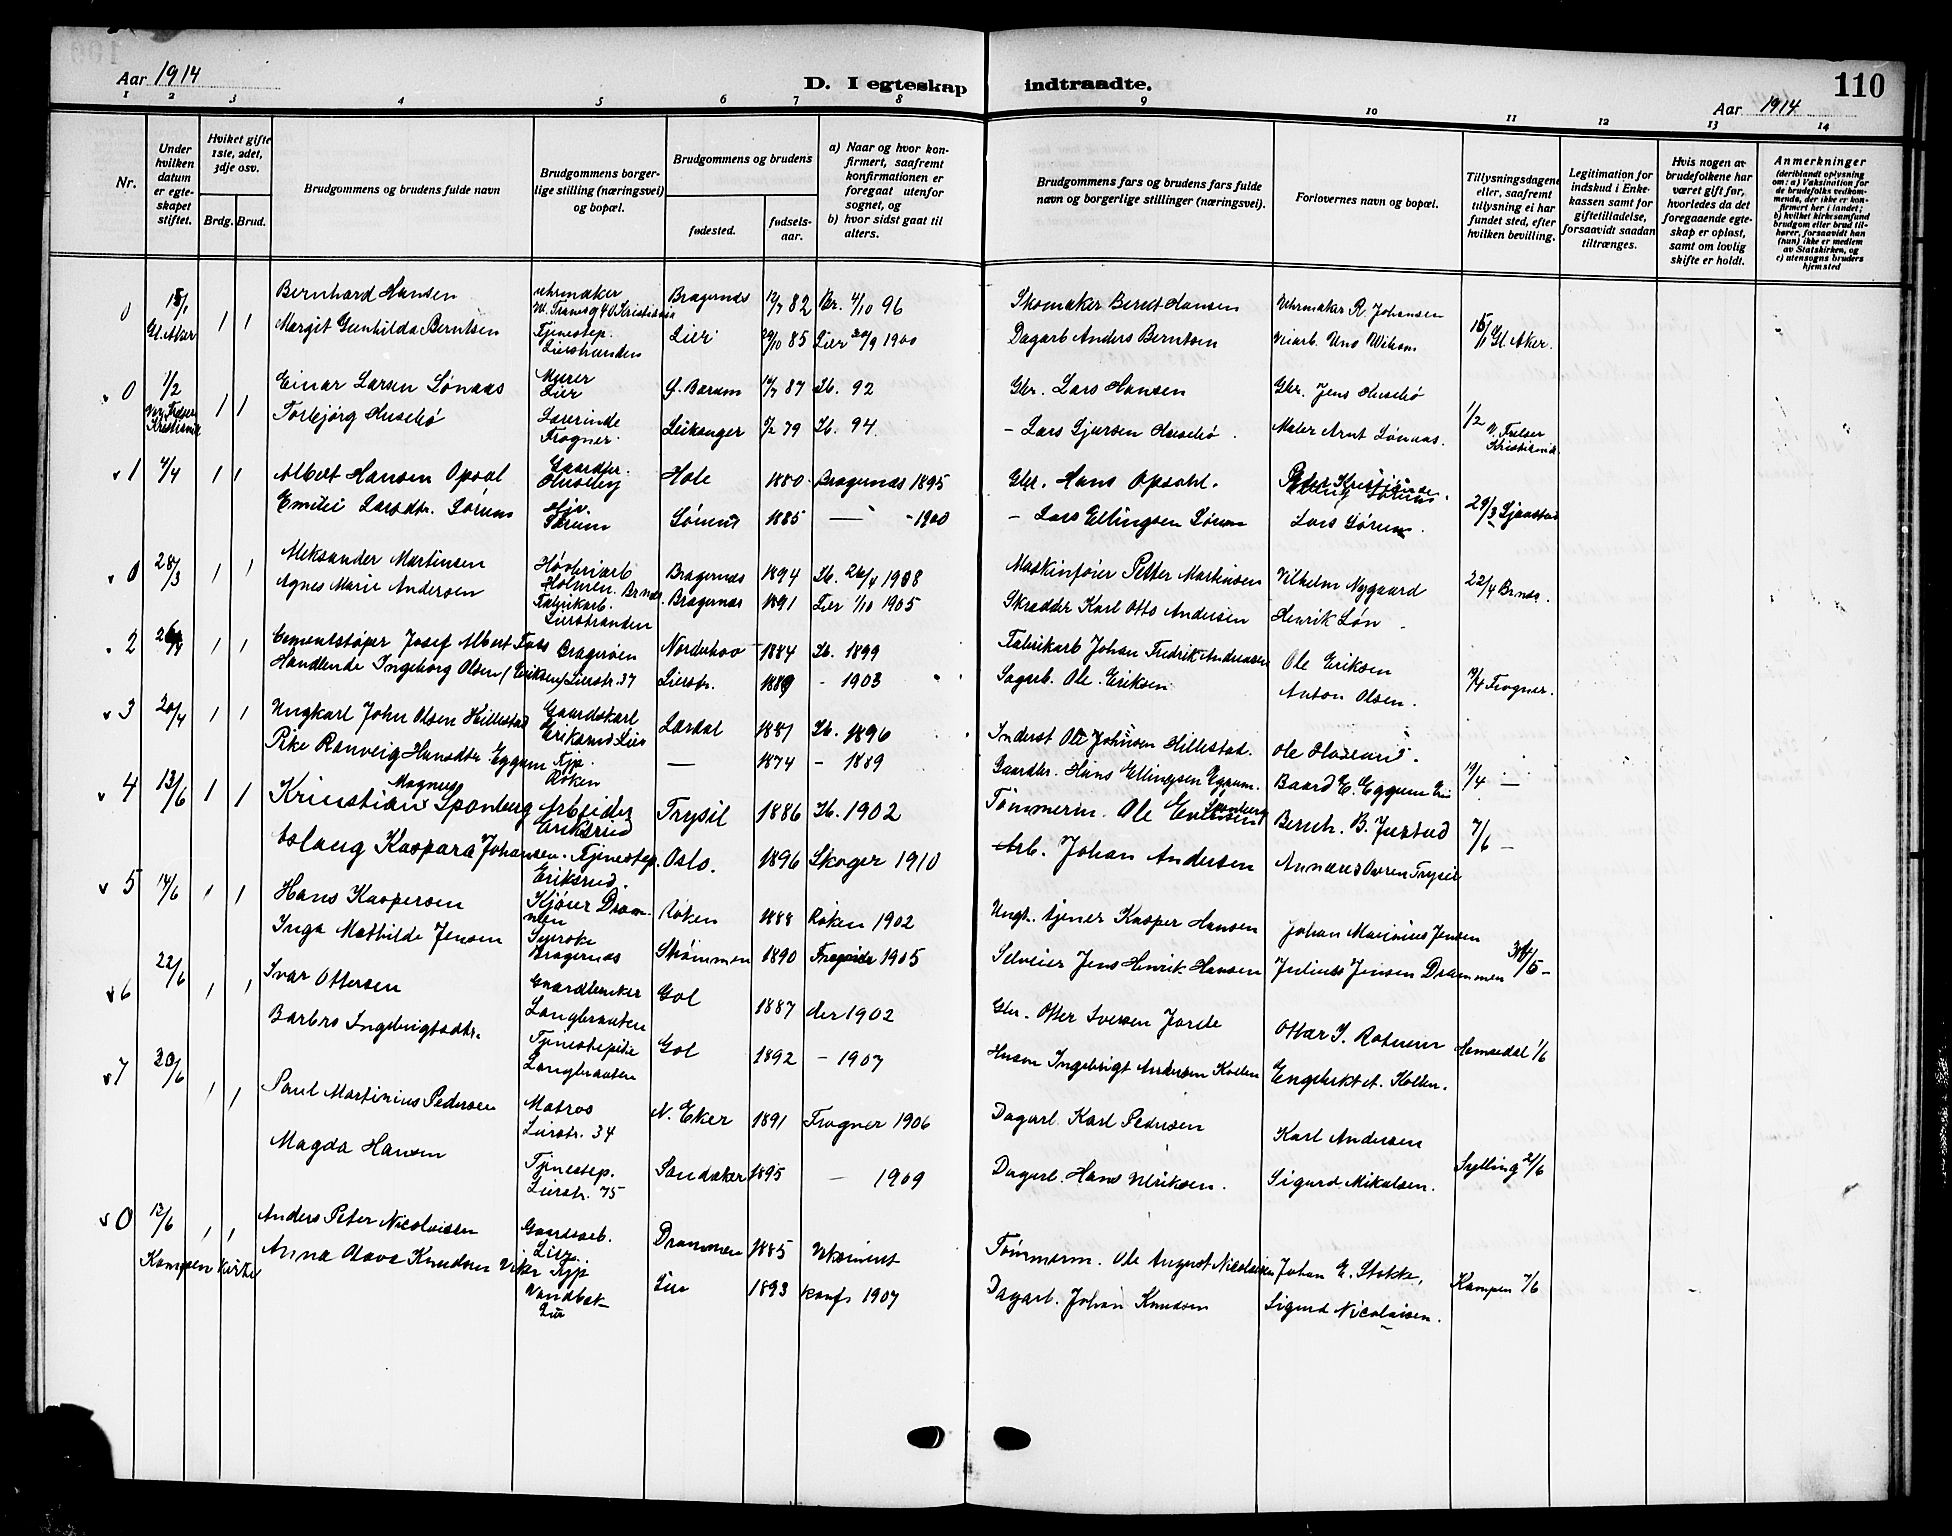 Aar 1914
D. I egteskap indtraadte.
110
Aar 1914
1 2 3 4 5 6 7 8 9 10 11 12 13 14
Nr.
Under hvilken datum er egteskapet stiftet.
Hvilket gifte 1ste, 2det, 3dje osv.
Brdg. Brud.
Brudgommens og brudens fulde navn
Brudgommens borgerlige stilling (næringsvei) og bopæl.
Brudgommens og brudens
fødested.
fødselsaar.
a) Naar og hvor konfirmert, saafremt konfirmationen er foregaat utenfor sognet, og
b) hvor sidst gaat til alters.
Brudgommens fars og brudens fars fulde navn og borgerlige stillinger (næringsvei).
Forlovernes navn og bopæl.
Tillysningsdagene eller, saafremt tillysning ei har fundet sted, efter hvilken bevilling.
Legitimation for indskud i Enkekassen samt for giftetilladelse, forsaavidt saadan tiltrænges.
Hvis nogen av brudefolkene har været gift før, hvorledes da det foregaaende egteskap er opløst, samt om lovlig skifte er holdt.
Anmerkninger (deriblandt oplysning om: a) Vaksination for de brudefolks vedkommende, der ikke er konfirmert her i landet; b) hvilket kirkesamfund brudgom eller brud tilhører, forsaavidt han (hun) ikke er medlem av Statskirken, og c) utensogns bruders hjemsted
0 Gl. Aker 1 1 Bernhard Hansen Uhrmaker Bragernes 12/7 82 Br. 4/10 96 Skomaker Bernt Hansen Uhrmaker R. Johansen 15/1 Gl. Aker.
Margit Gunhilda Berntsen Tjenestep. Lierstranden Lier 29/10 85 Lier 30/9 1900 Dagarb Anders Berntsen
0 1/2 1 1 Einar Larsen Sønaas Murer Lier 87 92 Gbr. Lars Hansen Gbr. Jens Husebø 1/2
Torbjørg Husebø Lærerinde Frogner. Leikanger 79 94. - Lars Gjursen Husebø. Maler Arnt Sønaas. V. Frelser Kristiania
1 4/4 1 1 Albert Hansen Opsal Gaardbr. Huseby Hole 1880 Bragernes 1895 Gbr. Hans Opsahl.
Emilie Larsdtr. Sørum Sørum 1885 — - 1900 - Lars Ellingsen Sørum Lars Sørum. 29/3
0 28/3 1 1 Aleksander Martinsen Høvleriarb Holmen. Brnæs. Bragernes 1894 26/4 1908 Maskinfører Petter Martinsen Vilhelm Nygaard 22/4 Brnæs.
Agnes Marie Andersen Fabrikarb. Lierstranden Bragernes 1891 Lier 1/10 1905 Skrædder Karl Otto Andersen Henrik Løn
2 1 1 Cementstøper Josef Albert Foss Bragerøen Norderhov 1884 1899 Fabrikarb Johan Fredrik Andreasen Ole Eriksen
Handlende Ingeborg Olsen (Eriksen) Lierstr. 37 Lierstr. 1889 - 1903 Sagarb. Ole Eriksen Anton Olsen. 19/4 Frogner.
3 20/4 1 1 Ungkarl John Olsen Hillestad Gaardskarl Eriksrud Lier Lardal 1881 1896 Inderst Ole Johnsen Hillestad.
Pike Ranveig Hansdtr Eggum Tjp. Røken — 1874 - 1889 Gaardbr. Hans Ellingsen Eggum. Baard E. Eggum 19/4 —
4 13/6 1 1 Kristian Magnus Sponberg Arbeider Eriksrud Trysil 1886 1902 Tømmerm. Ole Evensen Sponberg Bernh. B. Justad 7/6 —
Aslaug Kaspara Johansen. Tjenestep. Eriksrud. Oslo. 1896 Skoger 1910 Arb. Johan Andersen
5 14/6 1 1 Hans Kaspersen Kjører Drammen Røken 1888 Røken 1902 Kasper Hansen Johan Marinius Jensen
Inga Mathilde Jensen Syerske Bragernæs Strømmen 1890 1905 Selveier Jens Henrik Hansen Julius Jensen Drammen 31/5 -
6 22/6 1 1 Ivar Ottersen Gaardbruker Langbraaten Gol 1887 der 1902 Gbr. Otter Iversen Jorde
Barbro Ingebrigtsdtr. Tjenestepike Langbraaten Gol 1892 - 1907 Husm Ingebrigt Andersen Kollen Engebrikt A. Kollen. Hemsedal 1/6
7 20/6 1 1 Paul Martinius Pedersen Matros Lierstr. 34 N. Eker 1891 Frogner 1906 Dagarb. Karl Pedersen Karl Andersen
Magda Hansen Tjenestep. Lierstr. 75 Sandaker 1895 — 1909 Dagarb. Hans Ulriksen. Sigurd Mikalsen. Sylling 21/6
0 13/6 1 1 Anders Peter Nicolaisen Gaardsarb. Lier Drammen 1885 Ukonfirm. Tømmerm. Ole August Nicolaisen Johan E. Stokke,
Kampen kirke Anna Olava Knudsen Viker Tjp Vandbæk Lier Lier 1893 konf. 1907 Dagarb. Johan Knudsen Sigurd Nicolaisen. Kampen 7/6